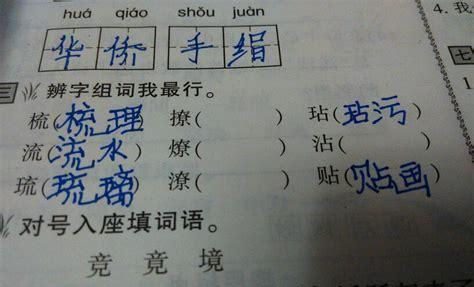 huá qiáo shǒu juàn
4. 我
华 侨 手 绢
三 辨字组词我最行。
七
梳(梳理) 撩( ) 玷(玷污)
1
流(流水) 燎( ) 沾( )
琉(琉璃) 潦( ) 贴(贴画)
对号入座填词语。
竞 竟 境